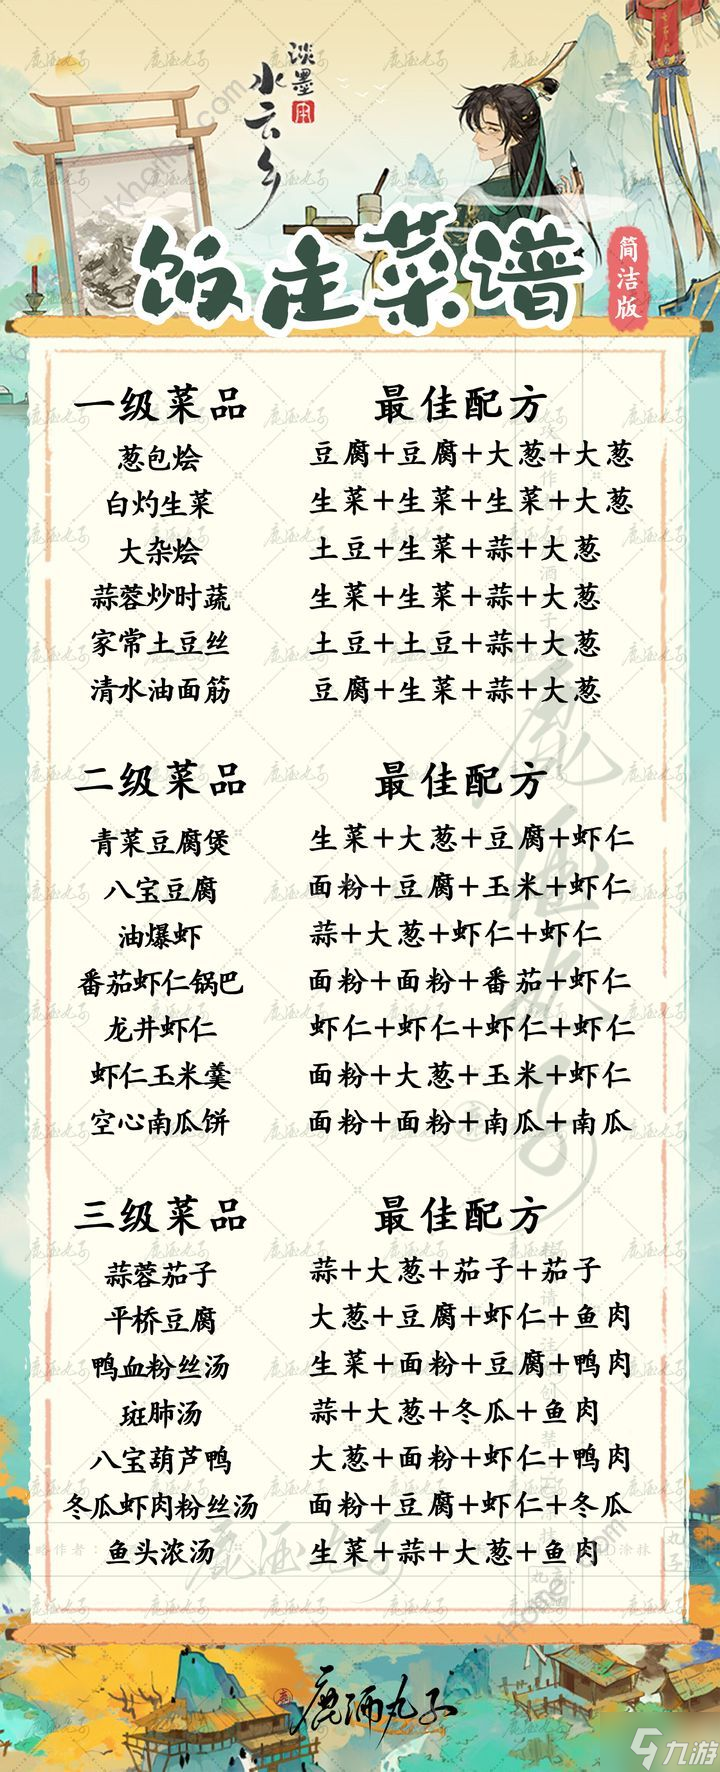 淡墨
水云乡
饭庄菜谱
简洁版
一级菜品 最佳配方
葱包烩 豆腐+豆腐+大葱+大葱
白灼生菜 生菜+生菜+生菜+大葱
大杂烩 土豆+生菜+蒜+大葱
蒜蓉炒时蔬 生菜+生菜+蒜+大葱
家常土豆丝 土豆+土豆+蒜+大葱
清水油面筋 豆腐+生菜+蒜+大葱
二级菜品 最佳配方
青菜豆腐煲 生菜+大葱+豆腐+虾仁
八宝豆腐 面粉+豆腐+玉米+虾仁
油爆虾 蒜+大葱+虾仁+虾仁
番茄虾仁锅巴 面粉+面粉+番茄+虾仁
龙井虾仁 虾仁+虾仁+虾仁+虾仁
虾仁玉米羹 面粉+大葱+玉米+虾仁
空心南瓜饼 面粉+面粉+南瓜+南瓜
三级菜品 最佳配方
蒜蓉茄子 蒜+大葱+茄子+茄子
平桥豆腐 大葱+豆腐+虾仁+鱼肉
鸭血粉丝汤 生菜+面粉+豆腐+鸭肉
斑肺汤 蒜+大葱+冬瓜+鱼肉
八宝葫芦鸭 大葱+面粉+虾仁+鸭肉
冬瓜虾肉粉丝汤 面粉+豆腐+虾仁+冬瓜
鱼头浓汤 生菜+蒜+大葱+鱼肉
鹿酒丸子
九游